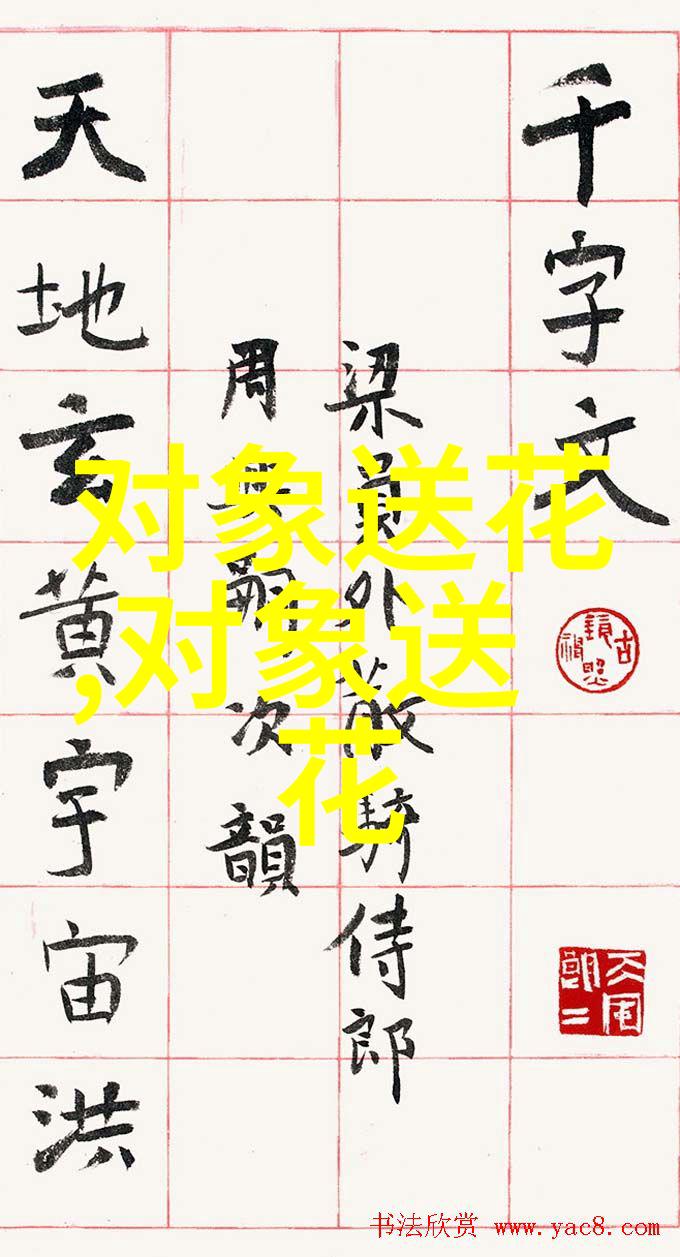 千字文
梁員外散騎侍郎
周興嗣次韻
天地玄黄宇宙洪
对象送花
,对象送
花
书法欣赏 www.yac8.com